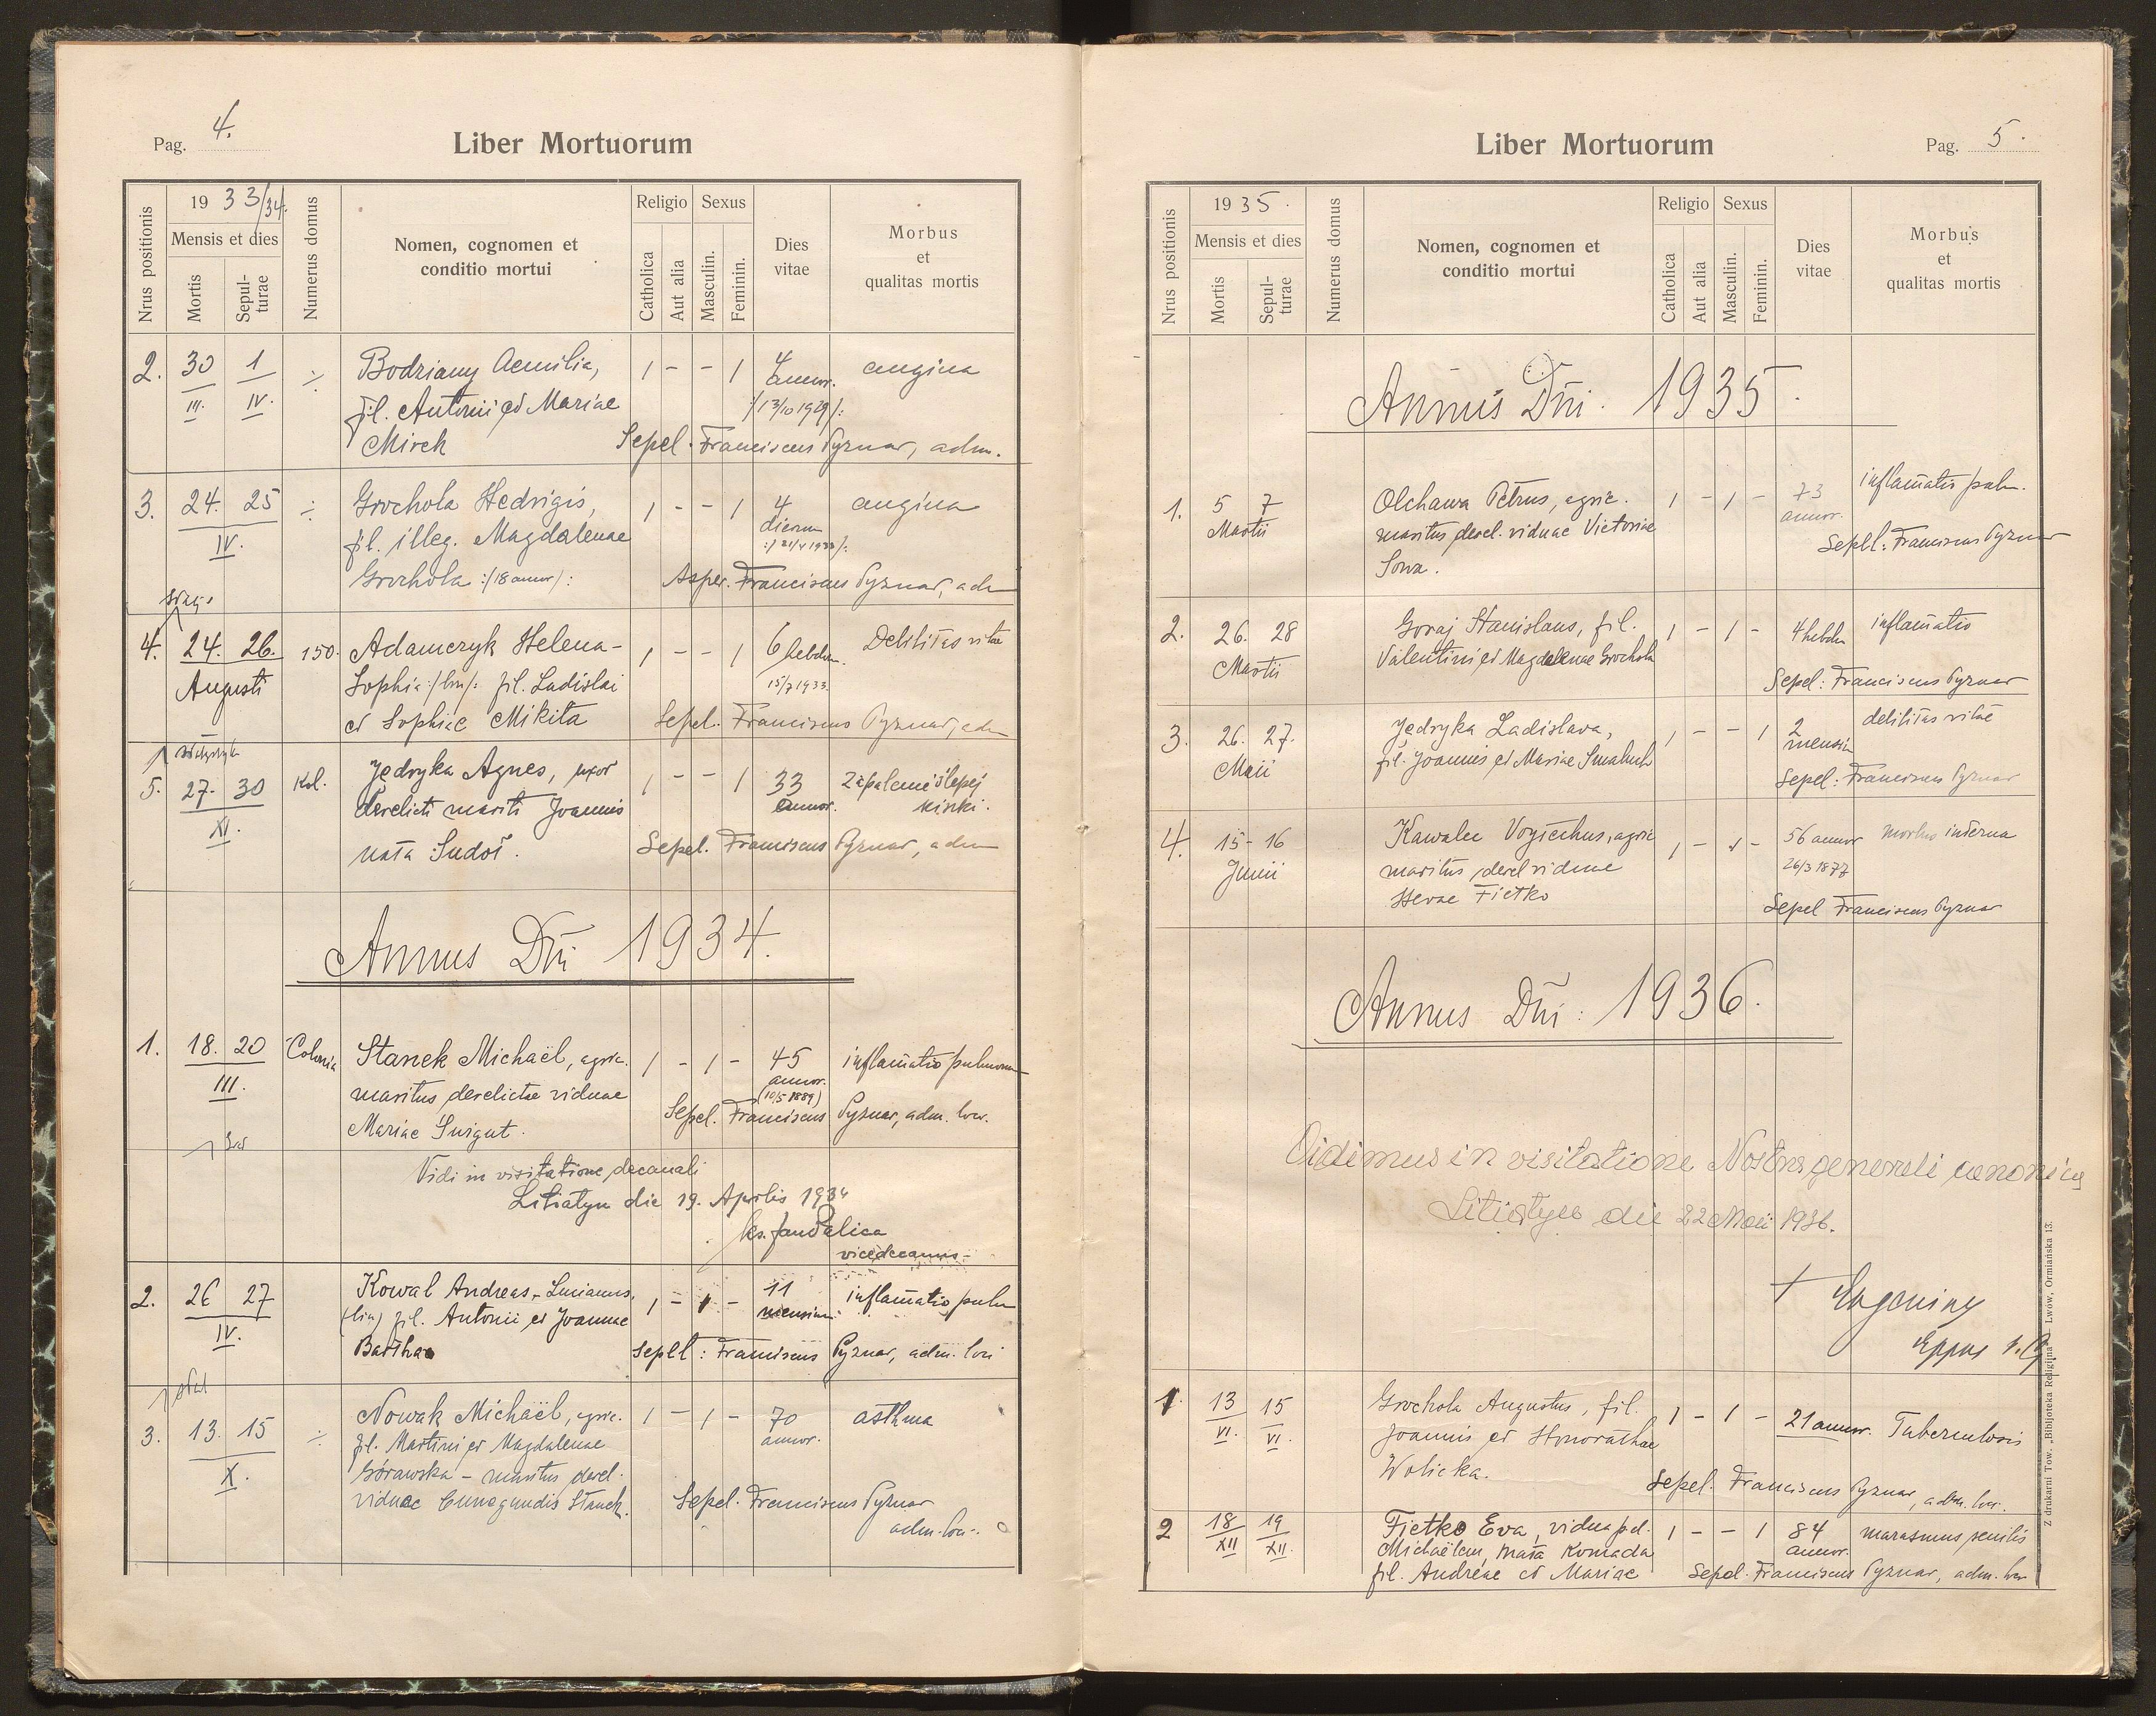 Pag. 4.
Liber Mortuorum
Nrus positionis
1933/34.
Mensis et dies
Mortis
Sepulturae
Numerus domus
Nomen, cognomen et
conditio mortui
Religio
Catholica
Aut alia
Sexus
Masculin.
Feminin.
Dies
vitae
Morbus
et
qualitas mortis
2. 30 1 ÷ Bodziany Aemilia, 1 - - 1 4 angina
III. IV. annor.
fil. Antonii et Mariae :/13/10 1929/:
Mirek Sepel. Franciscus Pyznar, adm.
3. 24. 25 ÷ Grochola Hedvigis, 1 - - 1 4 angina
IV. fil. illeg. Magdalenae dierum
Grochola :/18 annor/: Asper. Franciscus Pyznar, adm
4. 24. 26. 150. Adamczyk Helena- 1 - - 1 6 hebdom. Debilitas vitae
Augusti Sophia :/bin/: fil. Ladislai 15/7 1933.
et Sophiae Mikita Sepel. Franciscus Pyznar, adm
5. 27. 30 Kol. Jędryka Agnes, uxor 1 - - 1 33 Zapalenie ślepej
XI. derelicti mariti Joannis annor. kiszki.
nata Sudoł. Sepel. Franciscus Pyznar, adm
Annus Dni 1934.
1. 18. 20 Colonia Stanek Michaël, agric. 1 - 1 - 45 inflamatio pulmonum
III. maritus derelictae viduae annor. (10/5 1889)
Mariae Smigut. Sepel. Franciscus Pyznar, adm. loc.
Vidi in visitatione decanali
Litiatyn die 19. Aprilis 1934
ks. Jan Palica
vicedecanus-
2. 26 27 Kowal Andreas-Lucianus, 1 - 1 - 11 inflamatio pulm
IV. (bin) fil. Antonii et Joannae mensium
Bartha Sepelt: Franciscus Pyznar, adm. loci
3. 13. 15 ÷ Nowak Michaël, agric. 1 - 1 - 70 asthma
X. fil. Martini et Magdalenae annor.
Górawska - maritus derel.
viduae Cunegundis Stanek. Sepel. Franciscus Pyznar
adm. loc.
Liber Mortuorum
Pag. 5.
Nrus positionis
1935.
Mensis et dies
Mortis
Sepulturae
Numerus domus
Nomen, cognomen et
conditio mortui
Religio
Catholica
Aut alia
Sexus
Masculin.
Feminin.
Dies
vitae
Morbus
et
qualitas mortis
Annus Dni. 1935.
1. 5 7 Olchawa Petrus, agric. 1 - 1 - 73 inflamatio pulm.
Martii maritus derel. viduae Victoriae annor.
Sowa. Sepelt: Franciscus Pyznar
2. 26. 28 Goraj Stanislaus, fil. 1 - 1 - 4 hebdm inflamatio
Martii Valentini et Magdalenae Grochola
Sepel: Franciscus Pyznar
3. 26. 27. Jędryka Ladislava, 1 - - 1 2 debilitas vitae
Maii fil. Joannis et Mariae mensium
Sepel: Franciscus Pyznar
4. 15 - 16 Kawalec Vojciechus, agric 1 - 1 - 56 annor morbus interna
Junii maritus derel viduae 26/3 1877
Hevae Fietko
Sepel Franciscus Pyznar
Annus Dni: 1936.
Vidimus in visitatione Nostra generali canonica
Litiatyn die 22 Maii 1936.
† Eugenius
Eppus
1. 13 15 Grochola Augustus, fil. 1 - 1 - 21 annor. Tuberculosis
VI. VI. Joannis et Honorathae
Wolicka. Sepel. Franciscus Pyznar, adm. loc.
2 18 19 Fietko Eva, vidua p. d. 1 - - 1 84 marasmus senilis
XII XII. Michaëlem, nata Komada annor.
fil. Andreae et Mariae Sepel. Franciscus Pyznar, adm. loc
Z drukarni Tow. „Bibljoteka Religijna" Lwów, Ormiańska 13.